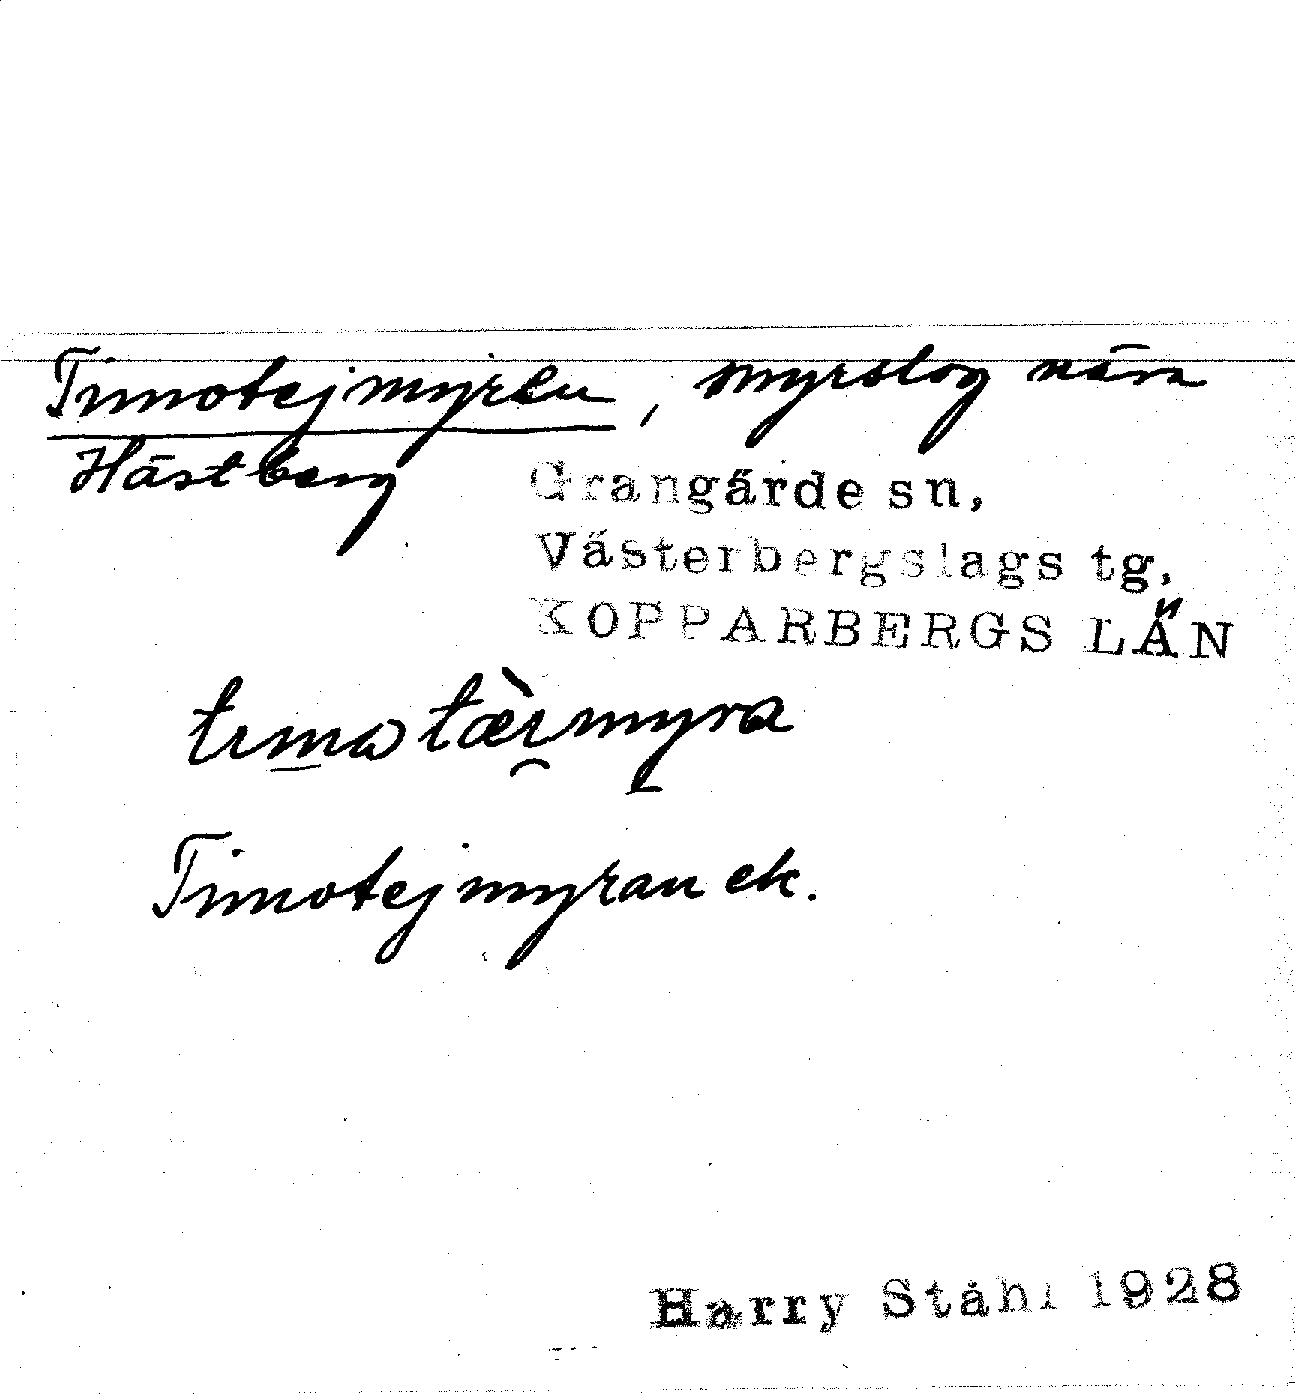 Timotejmyren, myrslog nära
Hästberg
Grangärde sn,
Västerbergslags tg,
KOPPARBERGS LÄN
tımatæ̀ı̯myra
Timotejmyran ek.
Harry Ståhl 1928